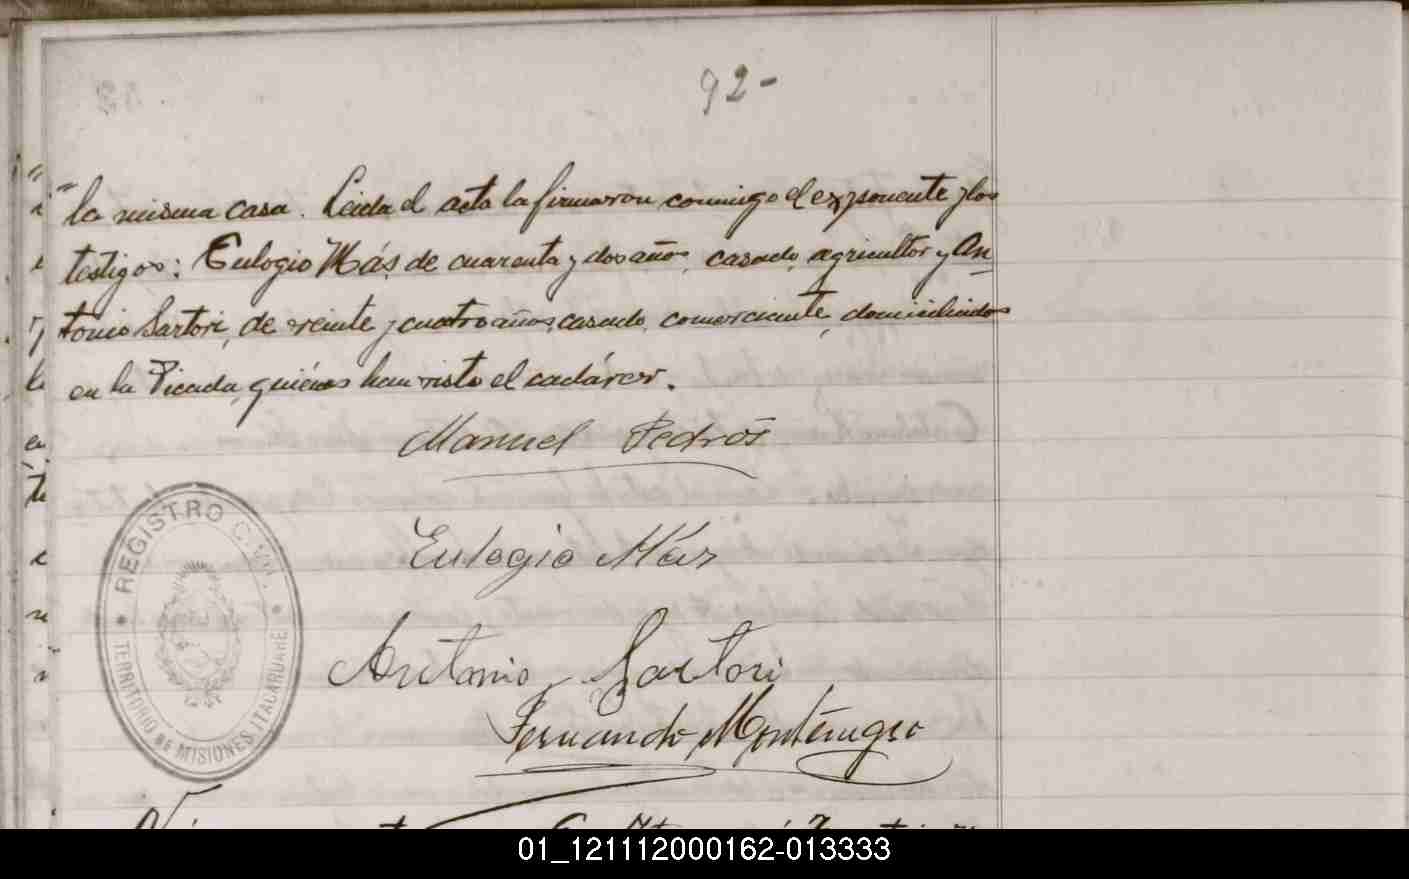 92-
la misma casa. Leida el acta la firmaron conmigo el exponente y los
testigos: Eulogio Más, de cuarenta y dos años, casado, agricultor y An-
tonio Sartori, de veinte y cuatro años, casado, comerciante, domiciliados
en la Picada, quiénes han visto el cadáver.
Manuel Pedrós
Eulogio Más
Antonio Sartori
Fernando Montenegro
REGISTRO CIVIL
TERRITORIO DE MISIONES ITACARUARE
01_121112000162-013333